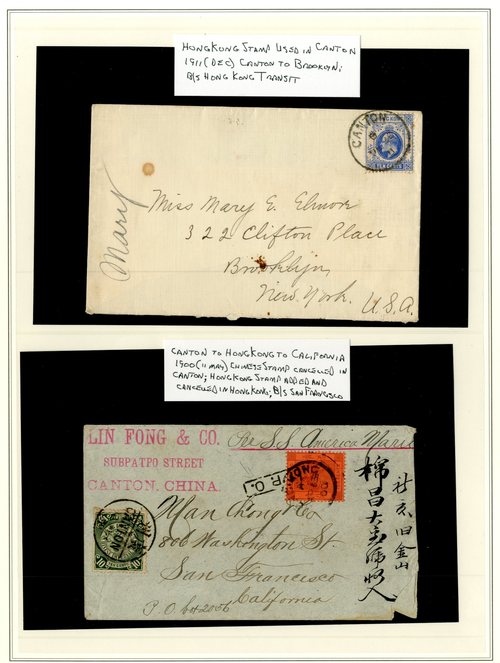 HONGKONG STAMP USED IN CANTON
1911 (DEC) CANTON TO BROOKLYN;
B/S HONG KONG TRANSIT
CANTON
Mary
Miss Mary E. Elmore
322 Clifton Place
Brooklijn,
New York.
U.S.A.
CANTON TO HONGKONG TO CALIFORNIA
1900 (11 MAY) CHINESE STAMP CANCELLED IN
CANTON; HONGKONG STAMP ADDED AND
CANCELLED IN HONGKONG; B/S SAN FRANCISCO
LIN FONG & CO.
Per S.S. America Maru
SUBPATPO STREET
CANTON, CHINA.
Man Fong Co
806 Washington St.
San Francisco
California
P.O. box 2056
CANTON
10
10
舊金山
棉昌大
收入